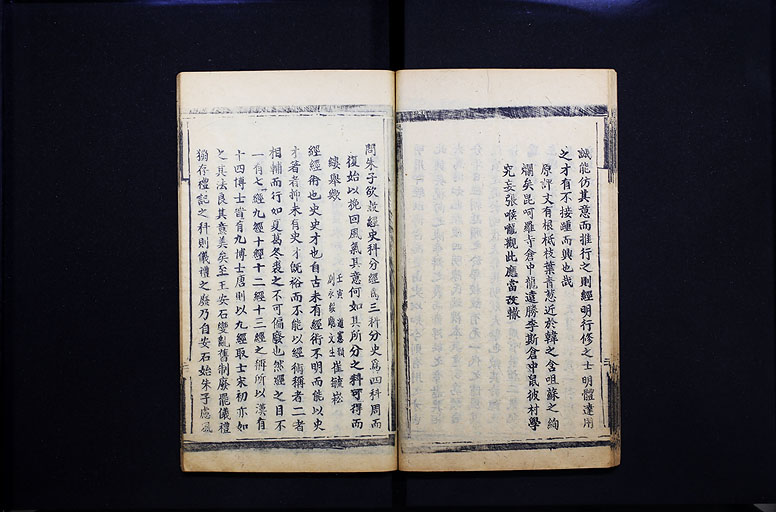 誠能仿其意而推行之則經明行修之士明體達用
之才有不接踵而興也哉
原評文有根柢枝葉青葱近於韓之含咀蘇之絢
爛矣毘呵羅寺倉中龍遠勝李斯倉中鼠彼村學
究妄張喉嚨觀此應當改轍
問朱子欲放經史科分經爲三科分史爲四科周而
復始以挽回風氣其意何如其所分之科可得而
縷舉歟
壬寅
崔
經經術也史史才也自古未有經術不明而能以史
才著者抑未有史才旣裕而不能以經術稱者二者
相輔而行如夏葛冬裘之不可偏廢也然經之目不
一有七經九經十經十二經十三經之稱所以漢有
十四博士晉有九博士唐則以九經取士宋初亦如
之其法良其意美矣至王安石變亂舊制廢罷儀禮
獨存禮記之科則儀禮之廢乃自安石始朱子處